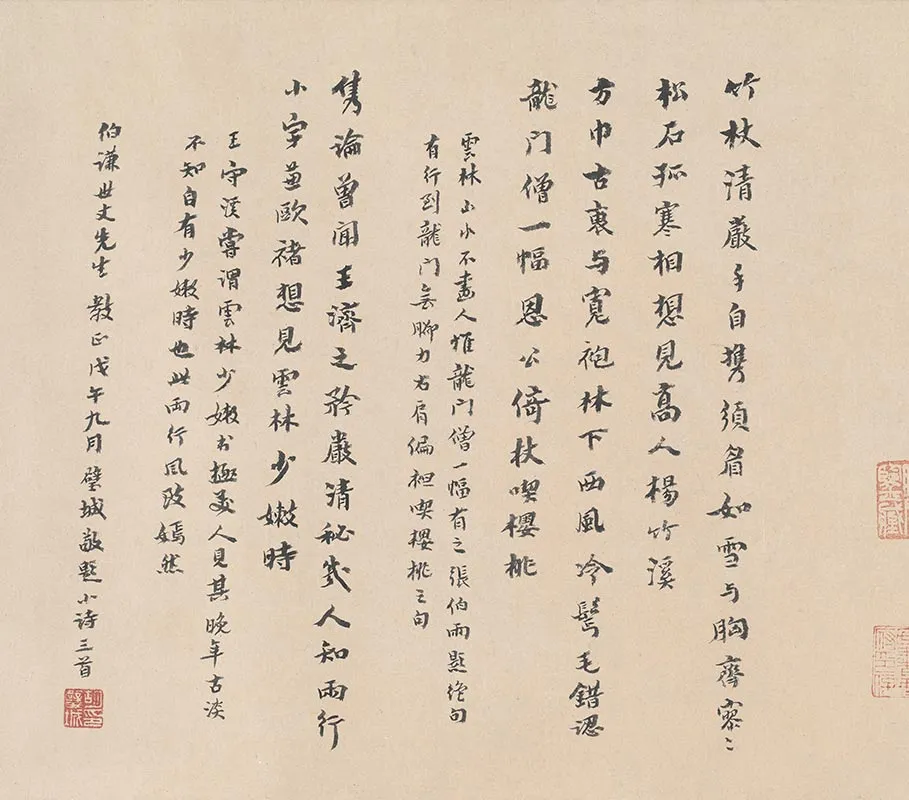 竹杖清嚴手自携須眉如雪与胸齊寥〻
松石孤寒相想見高人楊竹溪
方巾古裹与寬袍林下西風冷鬢毛錯認
龍门僧一幅恩公倚杖喫櫻桃
雲林山水不畫人惟龍门僧一幅有之張伯雨題绝句
有行到龍门無脚力右肩偏袒喫櫻桃之句
雋論曾聞王濟之矜嚴清秘幾人知兩行
小字兼歐褚想見雲林少嫩時
王守溪嘗謂雲林少嫩書極美人見其晚年古淡
不知自有少嫩時也此兩行風致嫣然
伯謙世丈先生 教正戊午九月璧城敬題小诗三首
胡璧城印